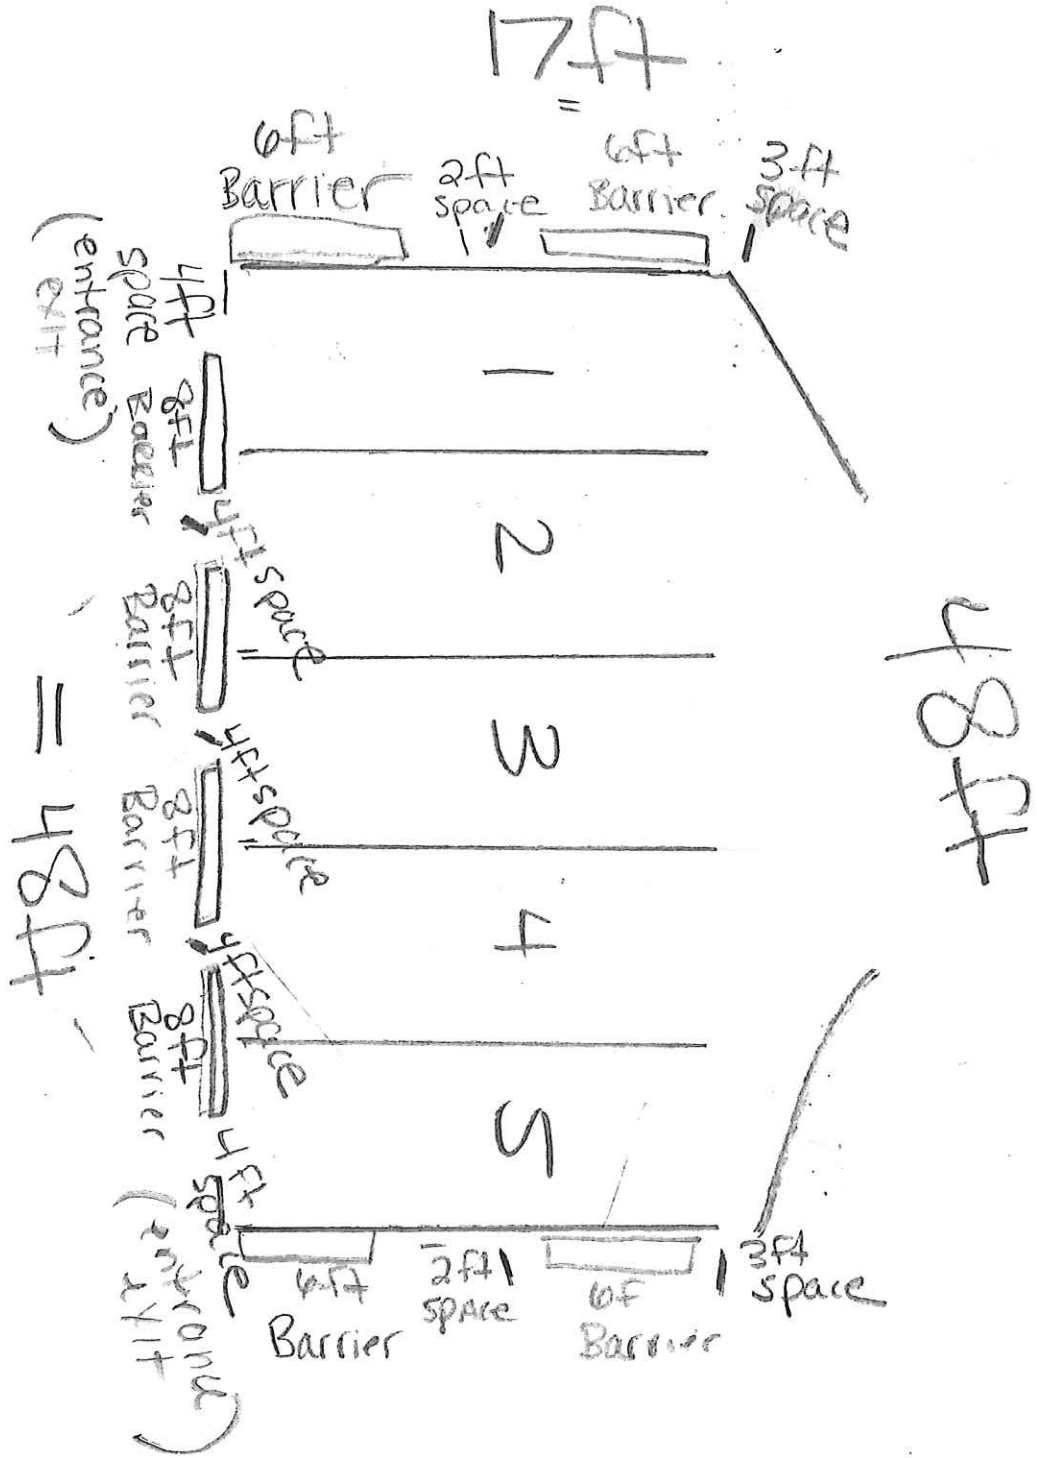 17ft
=
6ft
Barrier
2ft
space
6ft
Barrier
3ft
space
4ft
space
(entrance)
exit
8ft
Barrier
4ft space
8ft
Barrier
4ft space
8ft
Barrier
4ft space
8ft
Barrier
4ft
space
(entrance
exit)
= 48ft
1
2
3
4
5
48ft
6ft
Barrier
2ft
space
6f
Barrier
3ft
space